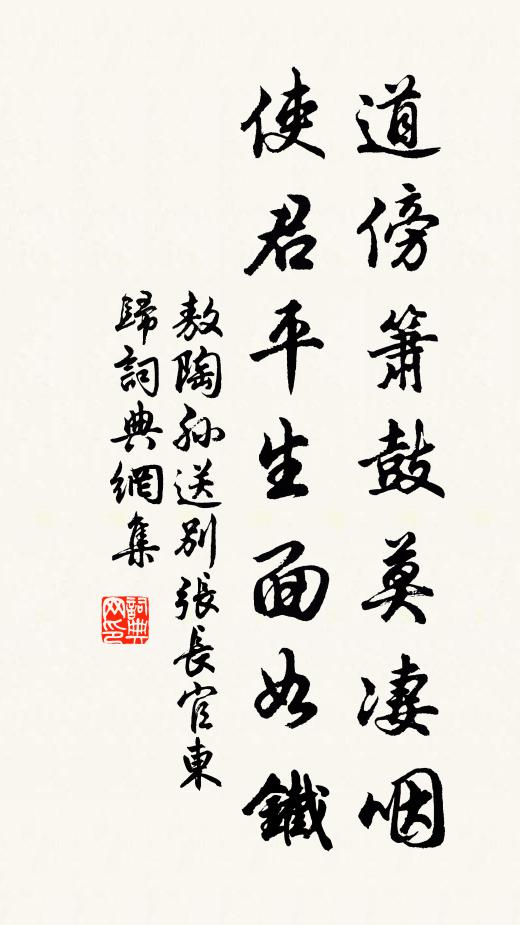 道傍簫鼓莫凄咽
使君平生面如鐵
敖陶孫送別張長官東
歸詞典網集
詞典网印